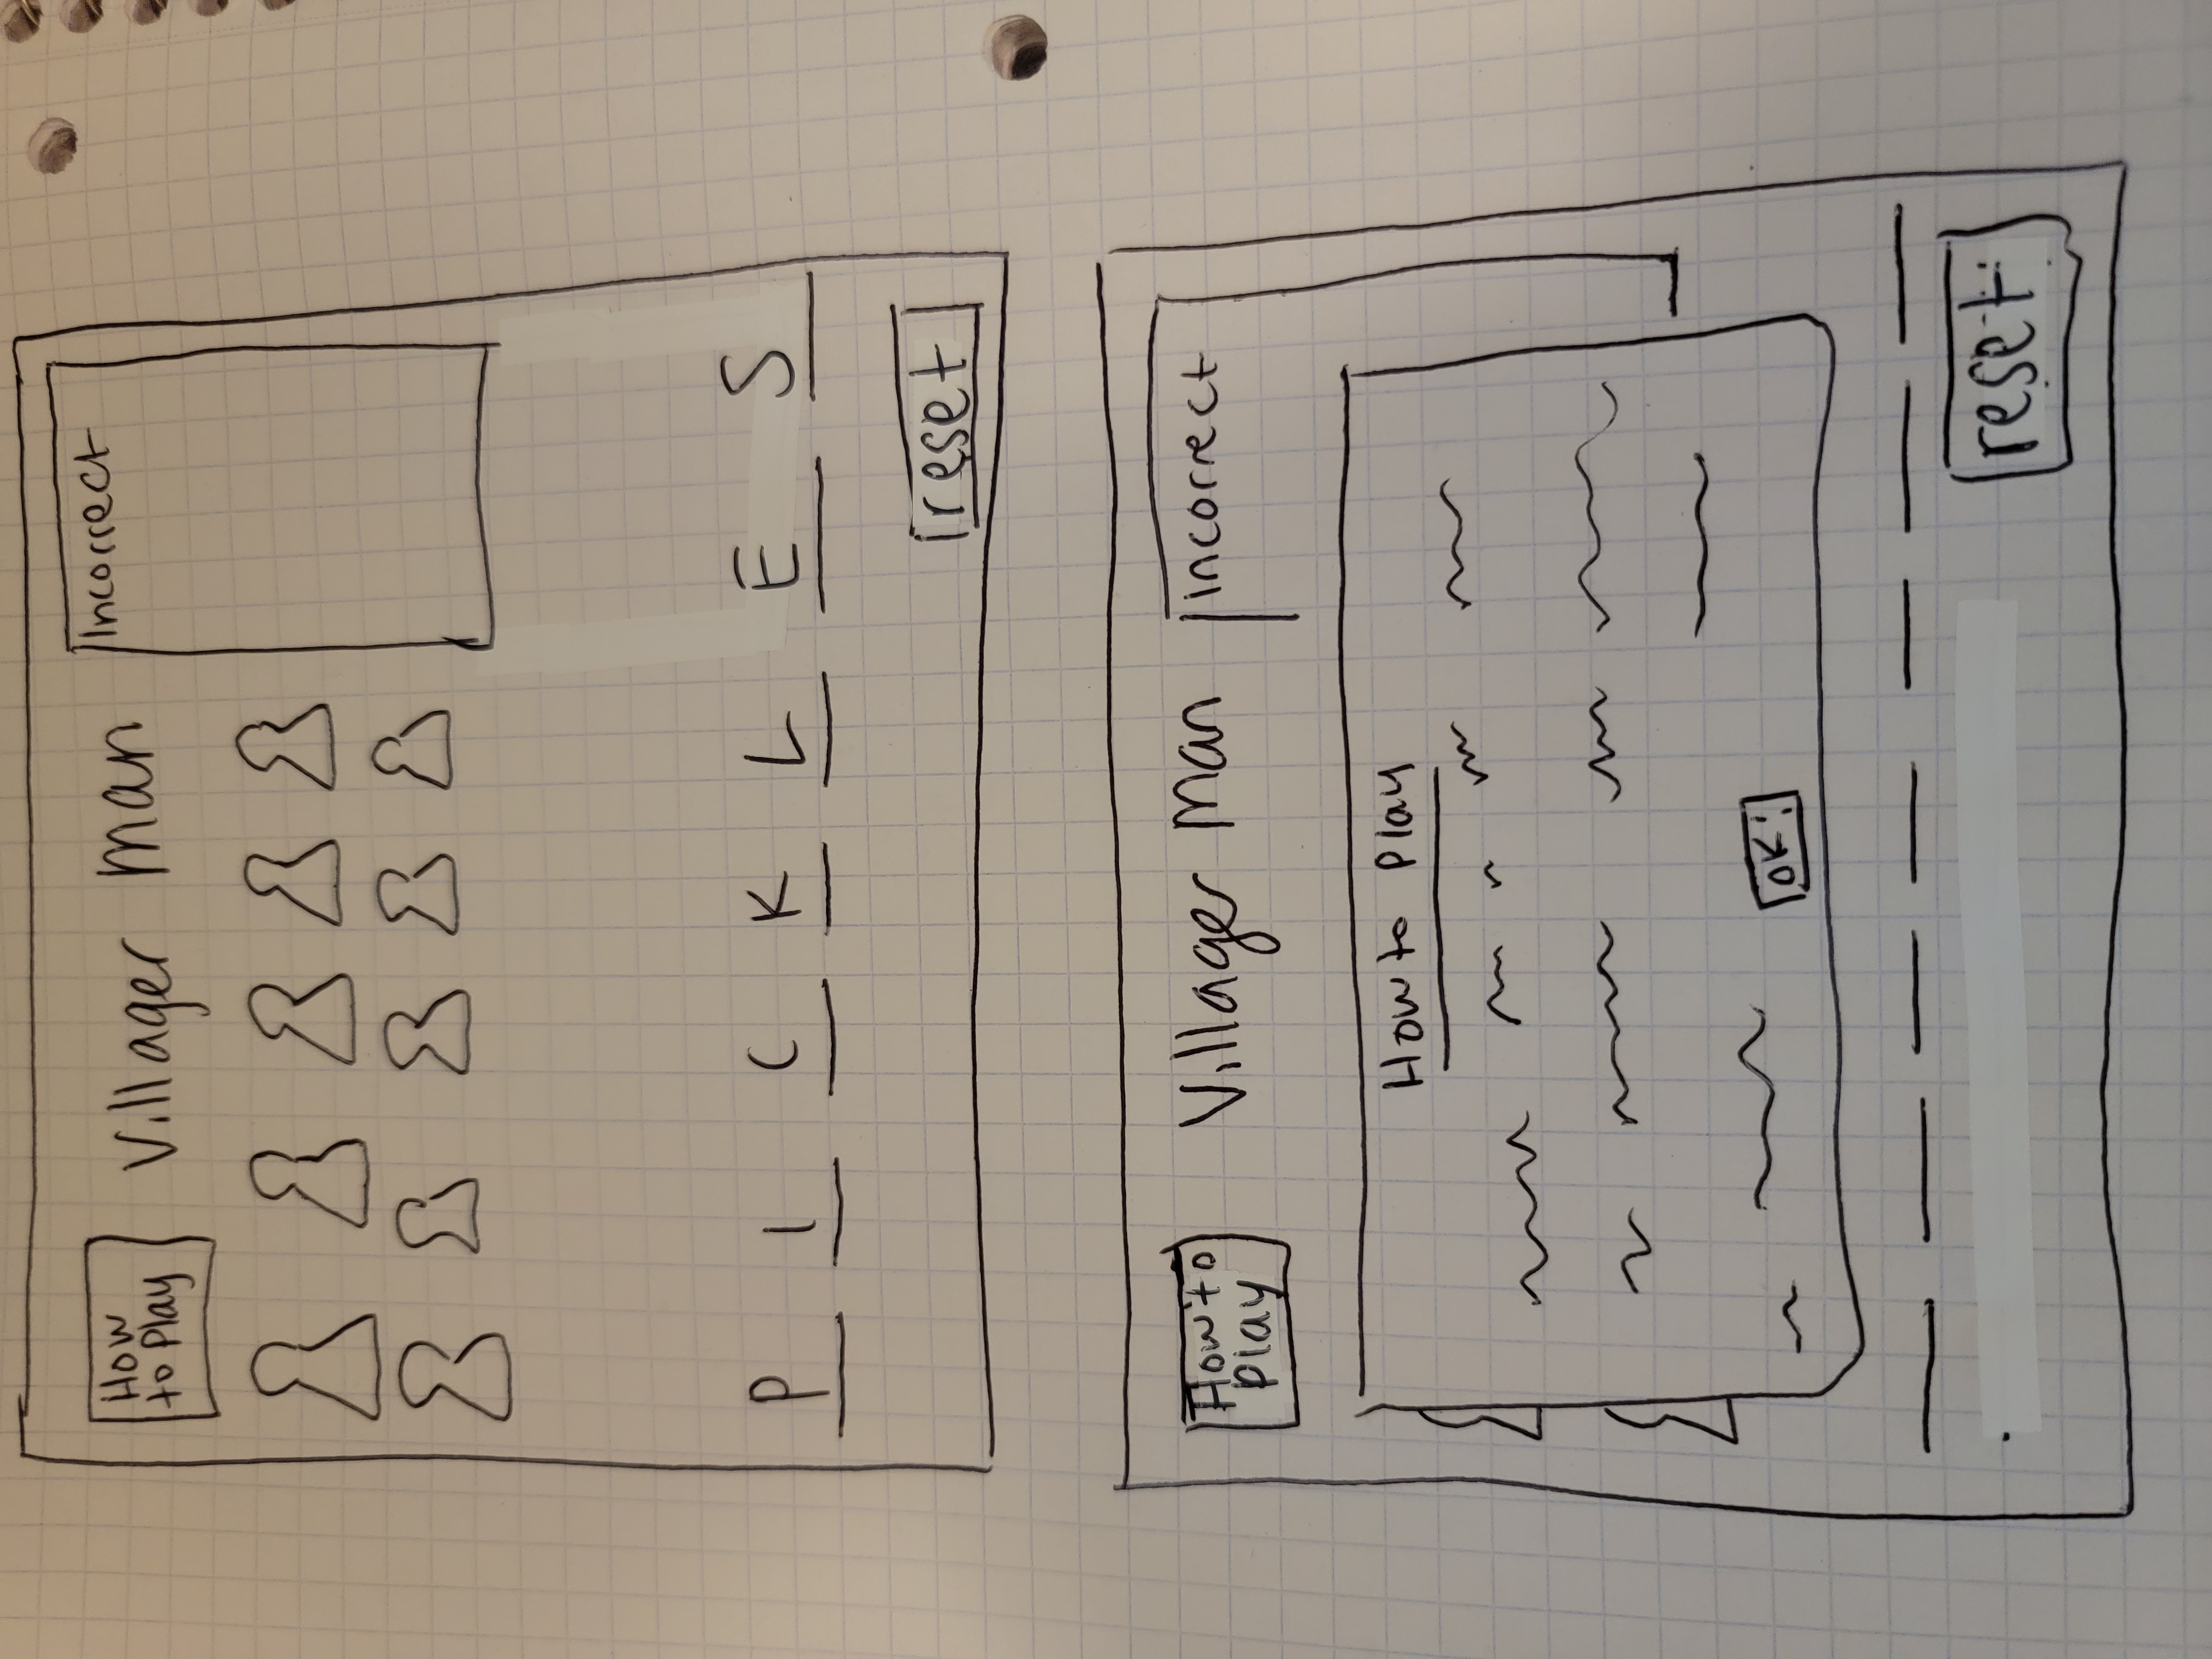 How
to Play
Villager Man
Incorrect
P I C K L E S
reset
How to
Play
Villager Man
incorrect
How to Play
OK!
reset